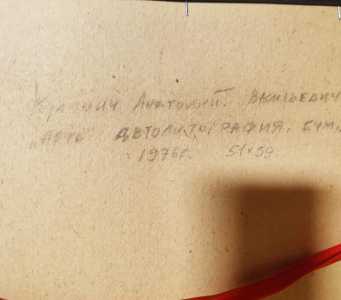 Анатолий Васильевич
"Лето" автолитография, бум.
1976г. 51х59